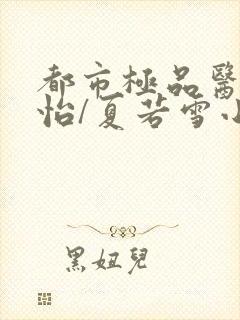 都市極品醫
怡/夏若雪小
黑妞兒